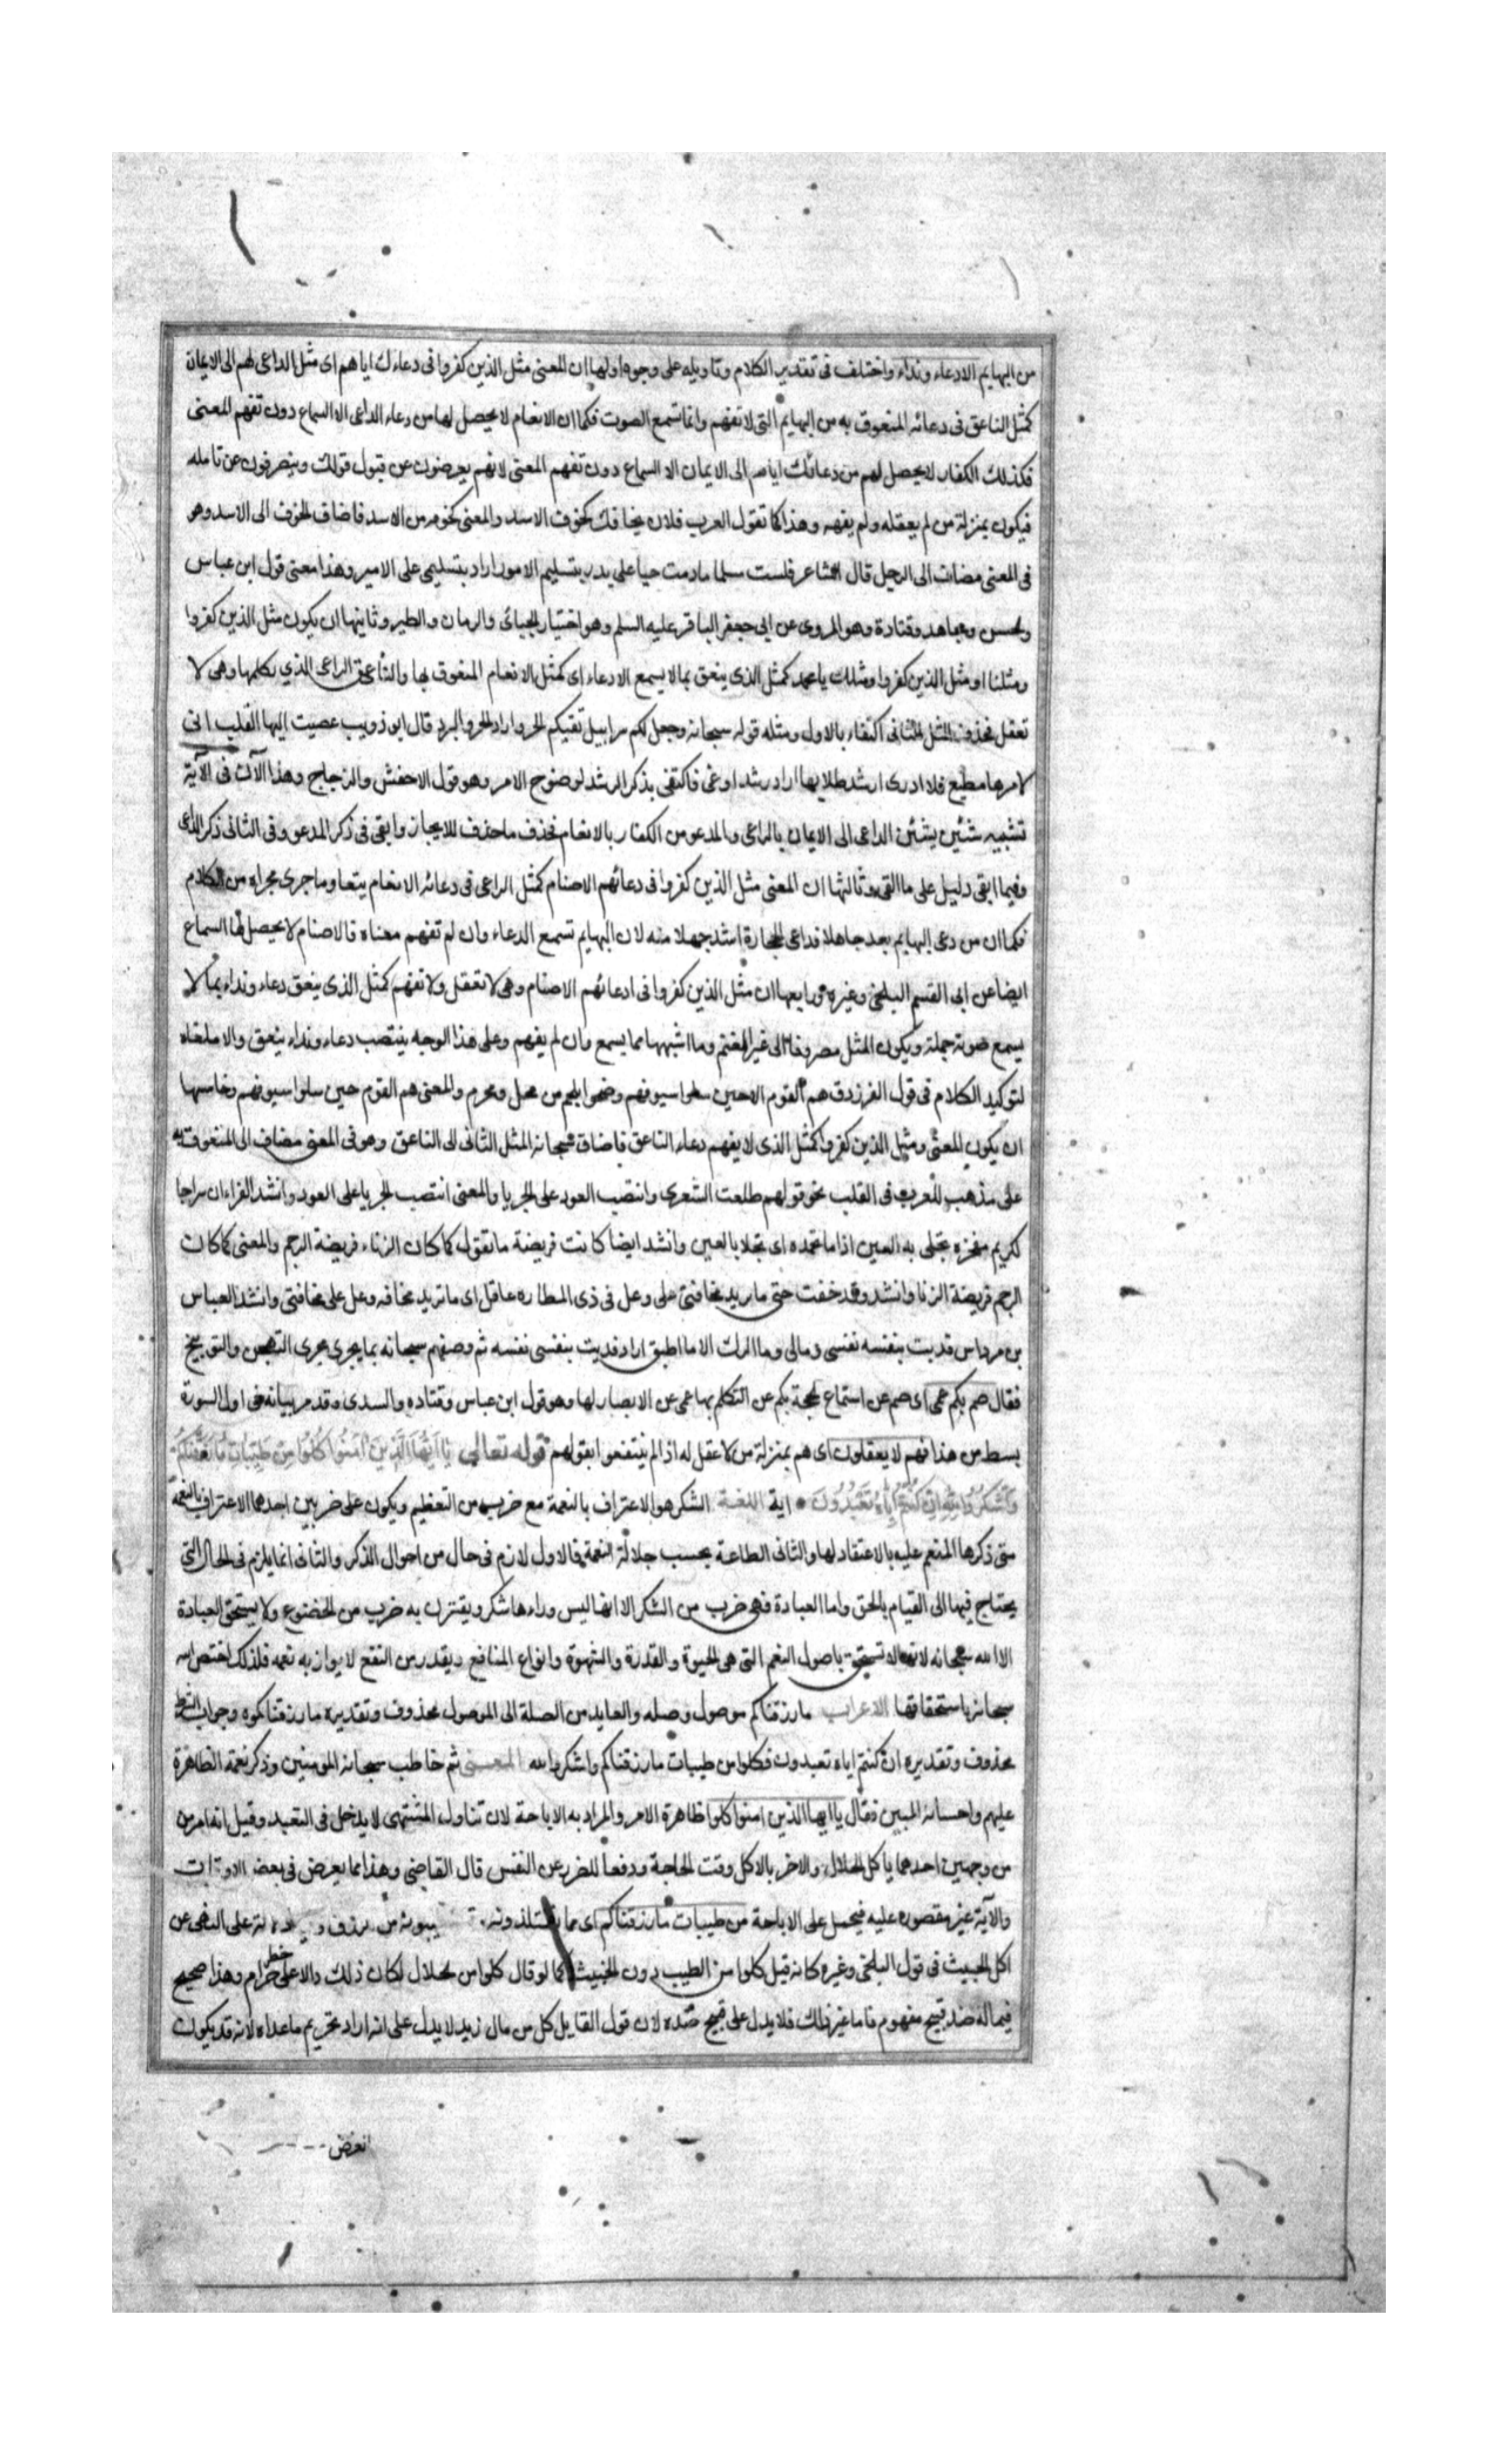 من البهايم الا دعاء ونداء واختلف فى تقدير الكلام وتاويله على وجوه اولها ان المعنى مثل الذين كفروا فى دعاءك اياهم اى مثل الداعى لهم الى الايمان
كمثل الناعق فى دعائه المنعوق به من البهايم التى لا تفهم وانما تسمع الصوت فكما ان الانعام لا يحصل لها من دعاء الداعى الا السماع دون تفهم المعنى
فكذلك الكفار لا يحصل لهم من دعائك اياهم الى الايمان الا السماع دون تفهم المعنى لانهم يعرضون عن قبول قولك وينصرفون عن تامله
فيكون بمنزلة من لم يعقله ولم يفهمه وهذا كما تقول العرب فلان يخافك كخوف الاسد والمعنى كخوفه من الاسد فاضاف الخوف الى الاسد وهو
فى المعنى مضاف الى الرجل قال الشاعر فلست مسلما ما دمت حيا على يدر بتسليم الامور اراد بتسليمى على الامير وهذا معنى قول ابن عباس
والحسن ومجاهد وقتادة وهو المروى عن ابى جعفر الباقر عليه السلم وهو اختيار الجبائى والرمان والطبر وثانيها ان يكون مثل الذين كفروا
ومثلنا او مثل الذين كفروا ومثلك يا محمد كمثل الذى ينعق بما لا يسمع الا دعاء اى كمثل الانعام المنعوق بها والناعق الراعى الذي يكلمها وهى لا
تعقل فحذف المثل الثانى اكتفاء بالاول ومثله قوله سبحانه وجعل لكم سرابيل تقيكم الحر واراد الحر والبرد قال ابو ذويب عصيت اليها القلب انى
لامرها مطيع فلا ادرى ارشد طلابها اراد رشد او غى فاكتفى بذكر الرشد لوضوح الامر وهو قول الاخفش والزجاج وهذا الان فى الآية
تشبيه شئين بشئين الداعى الى الايمان بالراعى والمدعو من الكفار بالانعام فحذف ما حذف للايجاز وابقى فى ذكر المدعو وفى الثانى ذكر الداعى
وفيما ابقى دليل على ما القى وثالثها ان المعنى مثل الذين كفروا فى دعائهم الاصنام كمثل الراعى فى دعائه الانعام يتعا وما جرى مجراه من الكلام
فكما ان من دعى البهايم يعد جاهلا فداعى الحجارة اشد جهلا منه لان البهايم تسمع الدعاء وان لم تفهم معناه والاصنام لا يحصل لها السماع
ايضا عن ابى القسم البلخى وغيره ورابعها ان مثل الذين كفروا فى ادعائهم الاصنام وهى لا تعقل ولا تفهم كمثل الذى ينعق دعاء ونداء بما لا
يسمع صوته جملة ويكون المثل مصروفا الى غير الغنم وما اشبهها مما يسمع وان لم يفهم وعلى هذا الوجه ينتصب دعاء ونداء بينعق والا ملقاه
لتوكيد الكلام فى قول الفرزدق هم القوم الا حين سلوا سيوفهم وضحوا بلحم من محل ومحرم والمعنى هم القوم حين سلوا سيوفهم وخامسها
ان يكون المعنى ومثل الذين كفروا كمثل الذى لا يفهم دعاء الناعق فاضاف سبحانه المثل الثانى الى الناعق وهو فى المعنى مضاف الى المنعوق به
على مذهب العرب فى القلب نحو قولهم طلعت الشعرى وانتصب العود على الحربا والمعنى انتصب الحربا على العود وانشد الفراء ان سراجا
لكريم مفخره تحلى به العين اذا ما تجمده اى تجلا بالعين وانشد ايضا كانت فريضة ما تقول كما كان الزناء فريضة الرجم والمعنى كما كان
الرجم فريضة الزنا وانشد وقد خفت حتى ما ريد مخافتى على وعل فى ذى المطاره عاقل اى ما تزيد مخافه وعل على مخافتى وانشد العباس
بن مرداس فديت بنفسه نفسى ومالى وما الوك الا ما اطيق اراد فديت بنفسى نفسه ثم وصفهم سبحانه بما يجرى مجرى التهجين والتوبيخ
فقال صم بكم عمى اى صم عن استماع الحجة بكم عن التكلم بها عمى عن الابصار لها وهو قول ابن عباس وقتاده والسدى وقد مر بيانه فى اول السورة
بسط من هذا فهم لا يعقلون اى هم بمنزلة من لا عقل له اذ لم ينتفعوا بقولهم قوله تعالى يَا اَيُّهَا الَّذِينَ آمَنُوا كُلُوا مِنْ طَيِّبَاتِ مَا رَزَقْنَاكُمْ
وَاشْكُرُوا لِلّٰهِ اِنْ كُنْتُمْ اِيَّاهُ تَعْبُدُونَ اية اللغة الشكر هو الاعتراف بالنعمة مع ضرب من التعظيم ويكون على ضربين احدهما الاعتراف بالنعمة
متى ذكرها المنعم عليه بالاعتقاد لها والثانى الطاعة بحسب جلالة النعمة فالاول لازم فى حال من احوال الذكر والثانى انما يلزم فى الحال التى
يحتاج فيها الى القيام بالحق واما العبادة فهى ضرب من الشكر الا انها ليس وراءها شكر ويقترن به ضرب من الخضوع ولا يستحق العبادة
الا الله سبحانه لانه تستحق باصول النعم التى هى الحيوة والقدرة والشهوة وانواع المنافع ويقدر من النفع لا يوازيه نعمه فلذلك اختص الله
سبحانه باستحقاقها الاعراب ما رزقناكم موصول وصله والعايد من الصلة الى الموصول محذوف وتقديره ما رزقناكموه وجواب الشرط
محذوف وتقديره ان كنتم اياه تعبدون فكلوا من طيبات ما رزقناكم واشكروا لله المعنى ثم خاطب سبحانه المومنين وذكر نعمه الظاهرة
عليهم واحسانه المبين فقال يا ايها الذين امنوا كلوا ظاهرة الامر والمراد به الاباحة لان تناول المشتهى لا يدخل فى التعبد وقيل انه امر من
من وجهين احدهما يا كل الحلال والاخر بالاكل وقت الحاجة ودفعا للضرر عن النفس قال القاضى وهذا مما يعرض فى بعض الاوقات
والآية غير مقصوره عليه فيحمل على الاباحة من طيبات ما رزقناكم اى مما تستلذونه على النهى عن
اكل الخبيث فى قول البلخى وغيره كانه قيل كلوا من الطيب دون الخبيث كما لو قال كلوا من الحلال لكان ذلك دالا على حظر حرام وهذا صحيح
فيما له ضد قبيح مفهوم فاما غير ذلك فلا يدل على قبح ضده لان قول القايل كل من مال زيد لا يدل على انه اراد تحريم ما عداه لانه قد يكون